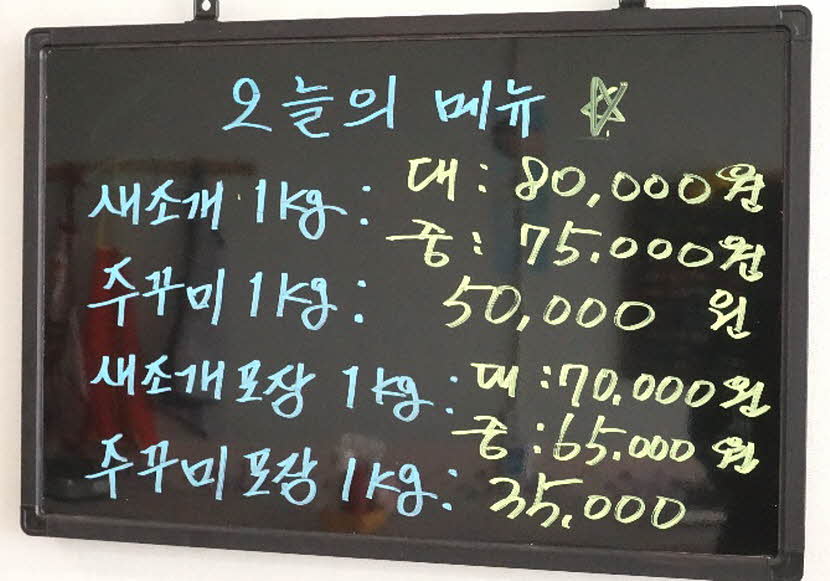 오늘의 메뉴
새조개 1kg: 대: 80,000원
중: 75.000원
주꾸미 1kg: 50,000 원
새조개 포장 1kg: 대:70.000원
중:65.000원
주꾸미 포장 1kg: 35.000